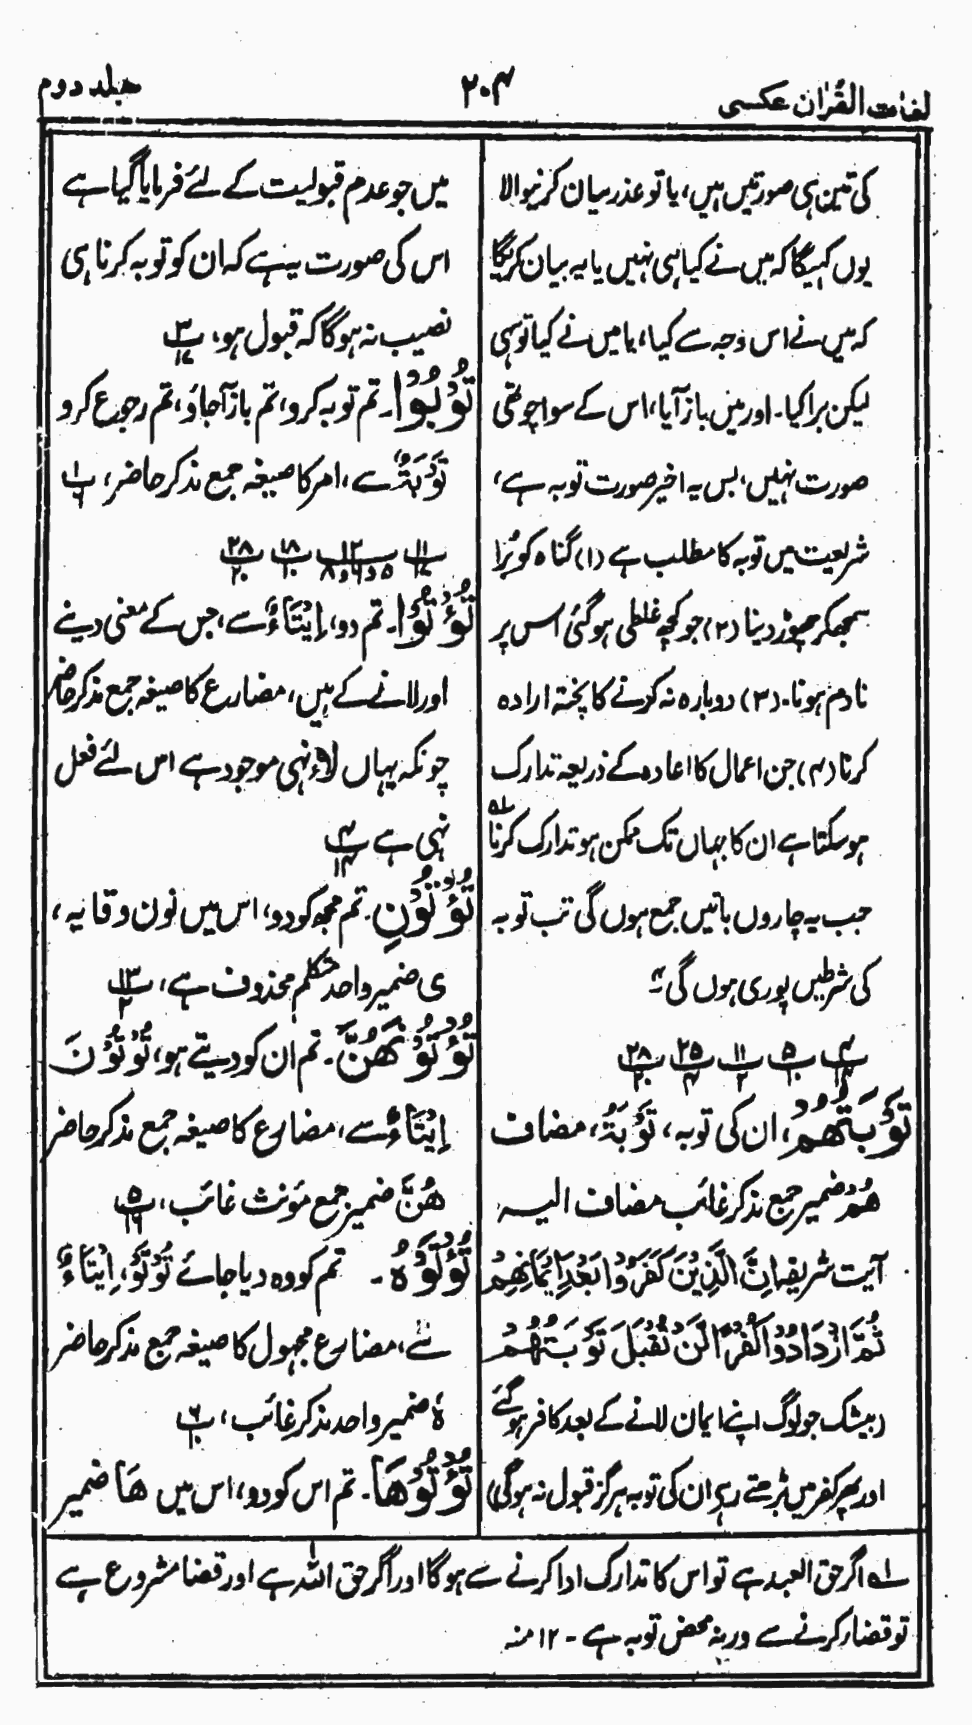 لغات القرآن عکسی
۲۰۴
جلد دوم
کی تین ہی صورتیں ہیں، یا تو عذر بیان کرنیوالا
یوں کہیگا کہ میں نے کیا ہی نہیں یا یہ بیان کریگا
کہ میں نے اس وجہ سے کیا، یا میں نے کیا تو سہی
لیکن برا کیا۔ اور میں باز آیا، اس کے سوا چوتھی
صورت نہیں، بس یہ اخیر صورت توبہ ہے،
شریعت میں توبہ کا مطلب ہے (۱) گناہ کو بُرا
سمجھکر چھوڑ دینا (۲) جو کچھ غلطی ہو گئی اس پر
نادم ہونا۔ (۳) دوبارہ نہ کرنے کا پختہ ارادہ
کرنا (۴) جن اعمال کا اعادہ کے ذریعہ تدارک
ہو سکتا ہے ان کا جہاں تک ممکن ہو تدارک کرنا ۱؎
جب یہ چاروں باتیں جمع ہوں گی تب توبہ
کی شرطیں پوری ہوں گی
پ۴/۱۴ پ۵/۱۰ پ۱۱/۲ پ۲۵/۴ پ۲۸/۲۰
تَوْبَتُهُمْ، ان کی توبہ، تَوْبَةٌ، مضاف
هُمْ ضمیر جمع مذکر غائب مضاف الیہ
آیت شریفہ اِنَّ الَّذِیْنَ کَفَرُوْا بَعْدَ اِیْمَانِهِمْ
ثُمَّ ازْدَادُوْا کُفْرًا لَّنْ تُقْبَلَ تَوْبَتُهُمْ
(بیشک جو لوگ اپنے ایمان لانے کے بعد کافر ہو گئے
اور پھر کفر میں بڑھتے رہے ان کی توبہ ہرگز قبول نہ ہوگی)
میں جو عدم قبولیت کے لئے فرمایا گیا ہے
اس کی صورت یہ ہے کہ ان کو توبہ کرنا ہی
نصیب نہ ہوگا کہ قبول ہو، پ۳/۱۷
تُوْبُوْا۔ تم توبہ کرو، تم باز آجاؤ، تم رجوع کرو
تَوْبَةٌ سے، امر کا صیغہ جمع مذکر حاضر، پ۱/۶
پ۱۱/۱۷ پ۱۲/۵ و ۶ و ۸ پ۱۸/۱۰ پ۲۸/۲۰
تُؤْتُوْا۔ تم دو، اِیْتَاءٌ سے، جس کے معنی دینے
اور لانے کے ہیں، مضارع کا صیغہ جمع مذکر حاضر
چونکہ یہاں لاءِ نہی موجود ہے اس لئے فعل
نہی ہے پ۴/۱۲
تُؤْتُوْنِ۔ تم مجھ کو دو، اس میں نون وقایہ،
ی ضمیر واحد متکلم محذوف ہے، پ۱۳/۲
تُؤْتُوْنَهُنَّ۔ تم ان کو دیتے ہو، تُؤْتُوْنَ
اِیْتَاءٌ سے، مضارع کا صیغہ جمع مذکر حاضر
هُنَّ ضمیر جمع مؤنث غائب، پ۵/۱۶
تُؤْتَوْهُ۔ تم کو وہ دیا جائے تُؤْتَوْ، اِیْتَاءٌ
سے، مضارع مجہول کا صیغہ جمع مذکر حاضر
ہٗ ضمیر واحد مذکر غائب، پ۶/۱۰
تُؤْتُوْهَا۔ تم اس کو دو، اس میں هَا ضمیر
۱؎ اگر حق العبد ہے تو اس کا تدارک ادا کرنے سے ہوگا اور اگر حق اللہ ہے اور قضا مشروع ہے
تو قضاء کرنے سے ورنہ محض توبہ ہے۔ ۱۲ منہ